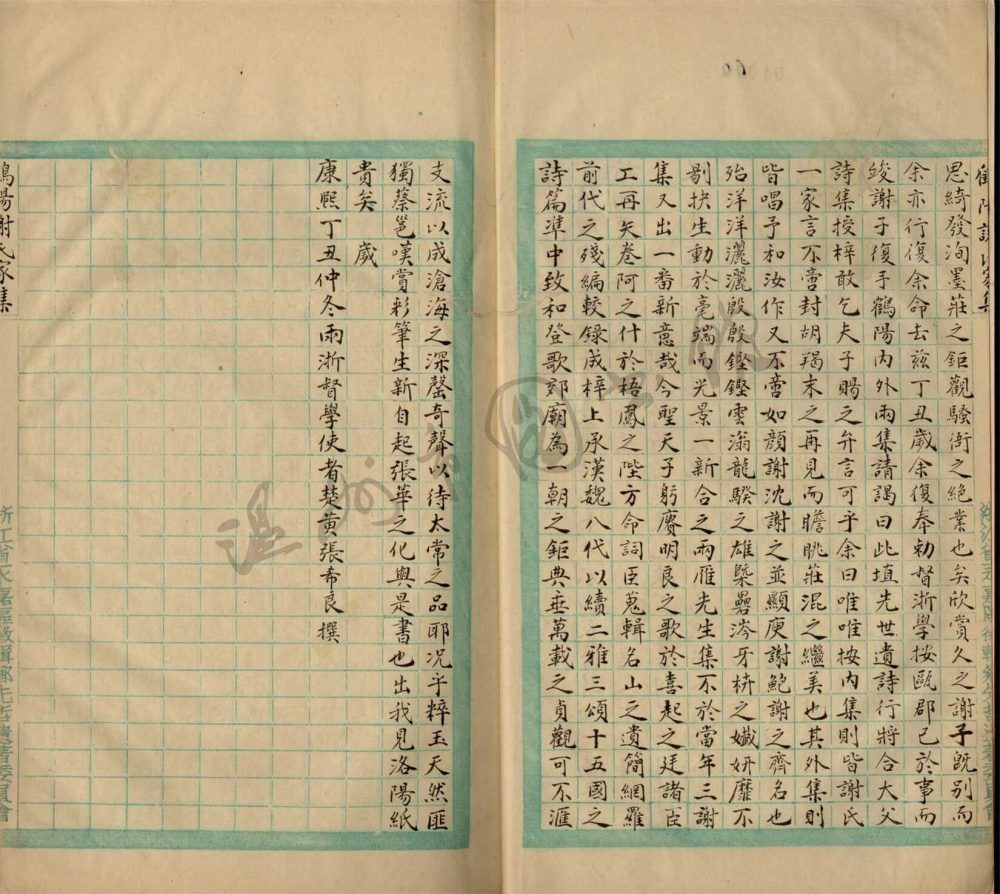 思綺發洵墨莊之鉅觀騷衙之絕業也矣欣賞久之謝子既別而
余亦行復余命去茲丁丑歲余復奉勅督浙學按甌郡已於事而
竣謝子復手鶴陽內外兩集請謁曰此埴先世遺詩行將合大父
詩集授梓敢乞夫子賜之弁言可乎余曰唯唯按內集則皆謝氏
一家言不啻封胡羯末之再見而瞻眺莊混之繼美也其外集則
皆唱予和汝作又不啻如顏謝沈謝之並顯庾謝鮑謝之齊名也
殆洋洋灑灑殷殷鏗鏗雲滃龍騤之雄槩礨涔牙枿之孅妍靡不
剔抉生動於毫端而光景一新合之兩雁先生集不於當年三謝
集又出一番新意哉今聖天子躬賡明良之歌於喜起之廷諸臣
工再矢卷阿之什於梧鳳之陛方命詞臣蒐輯名山之遺簡網羅
前代之殘編較錄成梓上承漢魏八代以續二雅三頌十五國之
詩篇準中致和登歌郊廟為一朝之鉅典垂萬載之貞觀可不滙
支流以成滄海之深罄奇聲以待太常之品耶況乎粹玉天然匪
獨蔡邕嘆賞彩筆生新自起張華之化與是書也出我見洛陽紙
貴矣 歲
康熙丁丑仲冬兩浙督學使者楚黃張希良撰
鶴陽謝氏家集
浙江省永嘉區徵輯鄉先哲遺著委員會